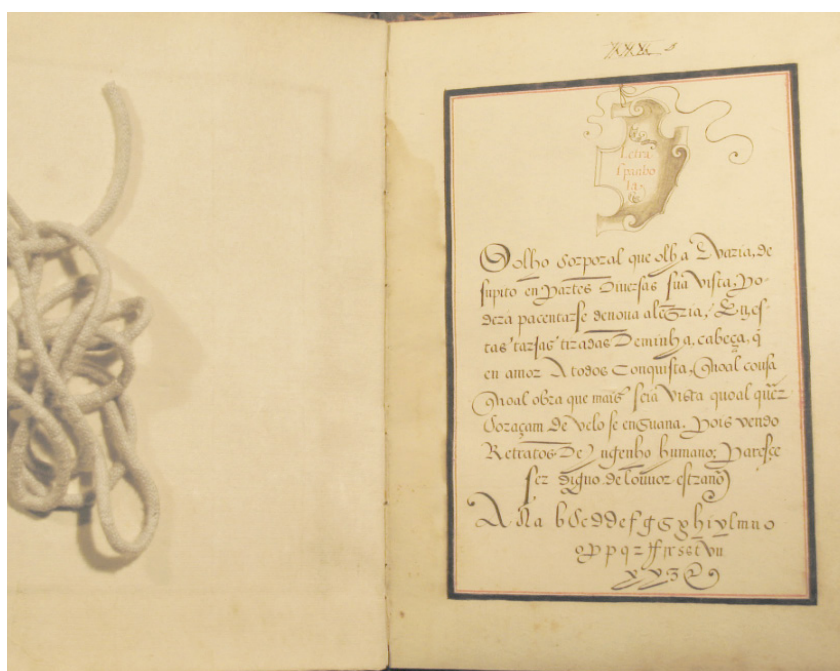 XXXI
Letra
Spanho
la
O olho Corporal que olha Avaria, de
supito en Partes Diversas sua vista, Po-
derá pacentarse denova alegria, En es-
tas tarjas tiradas De minha, cabeça, q̃
en amor A todos Conquista, Quoal cousa
Quoal obra que mais seia Vista quoal quer
Coraçam de velo se enguana. Pois vendo
Retratos De Yngenho humano: Paresçe
ser digno de louvor estrano
A A a b c c d d e f g G g h i y l m u o
o p p p q z ff r s s t V u
x y z